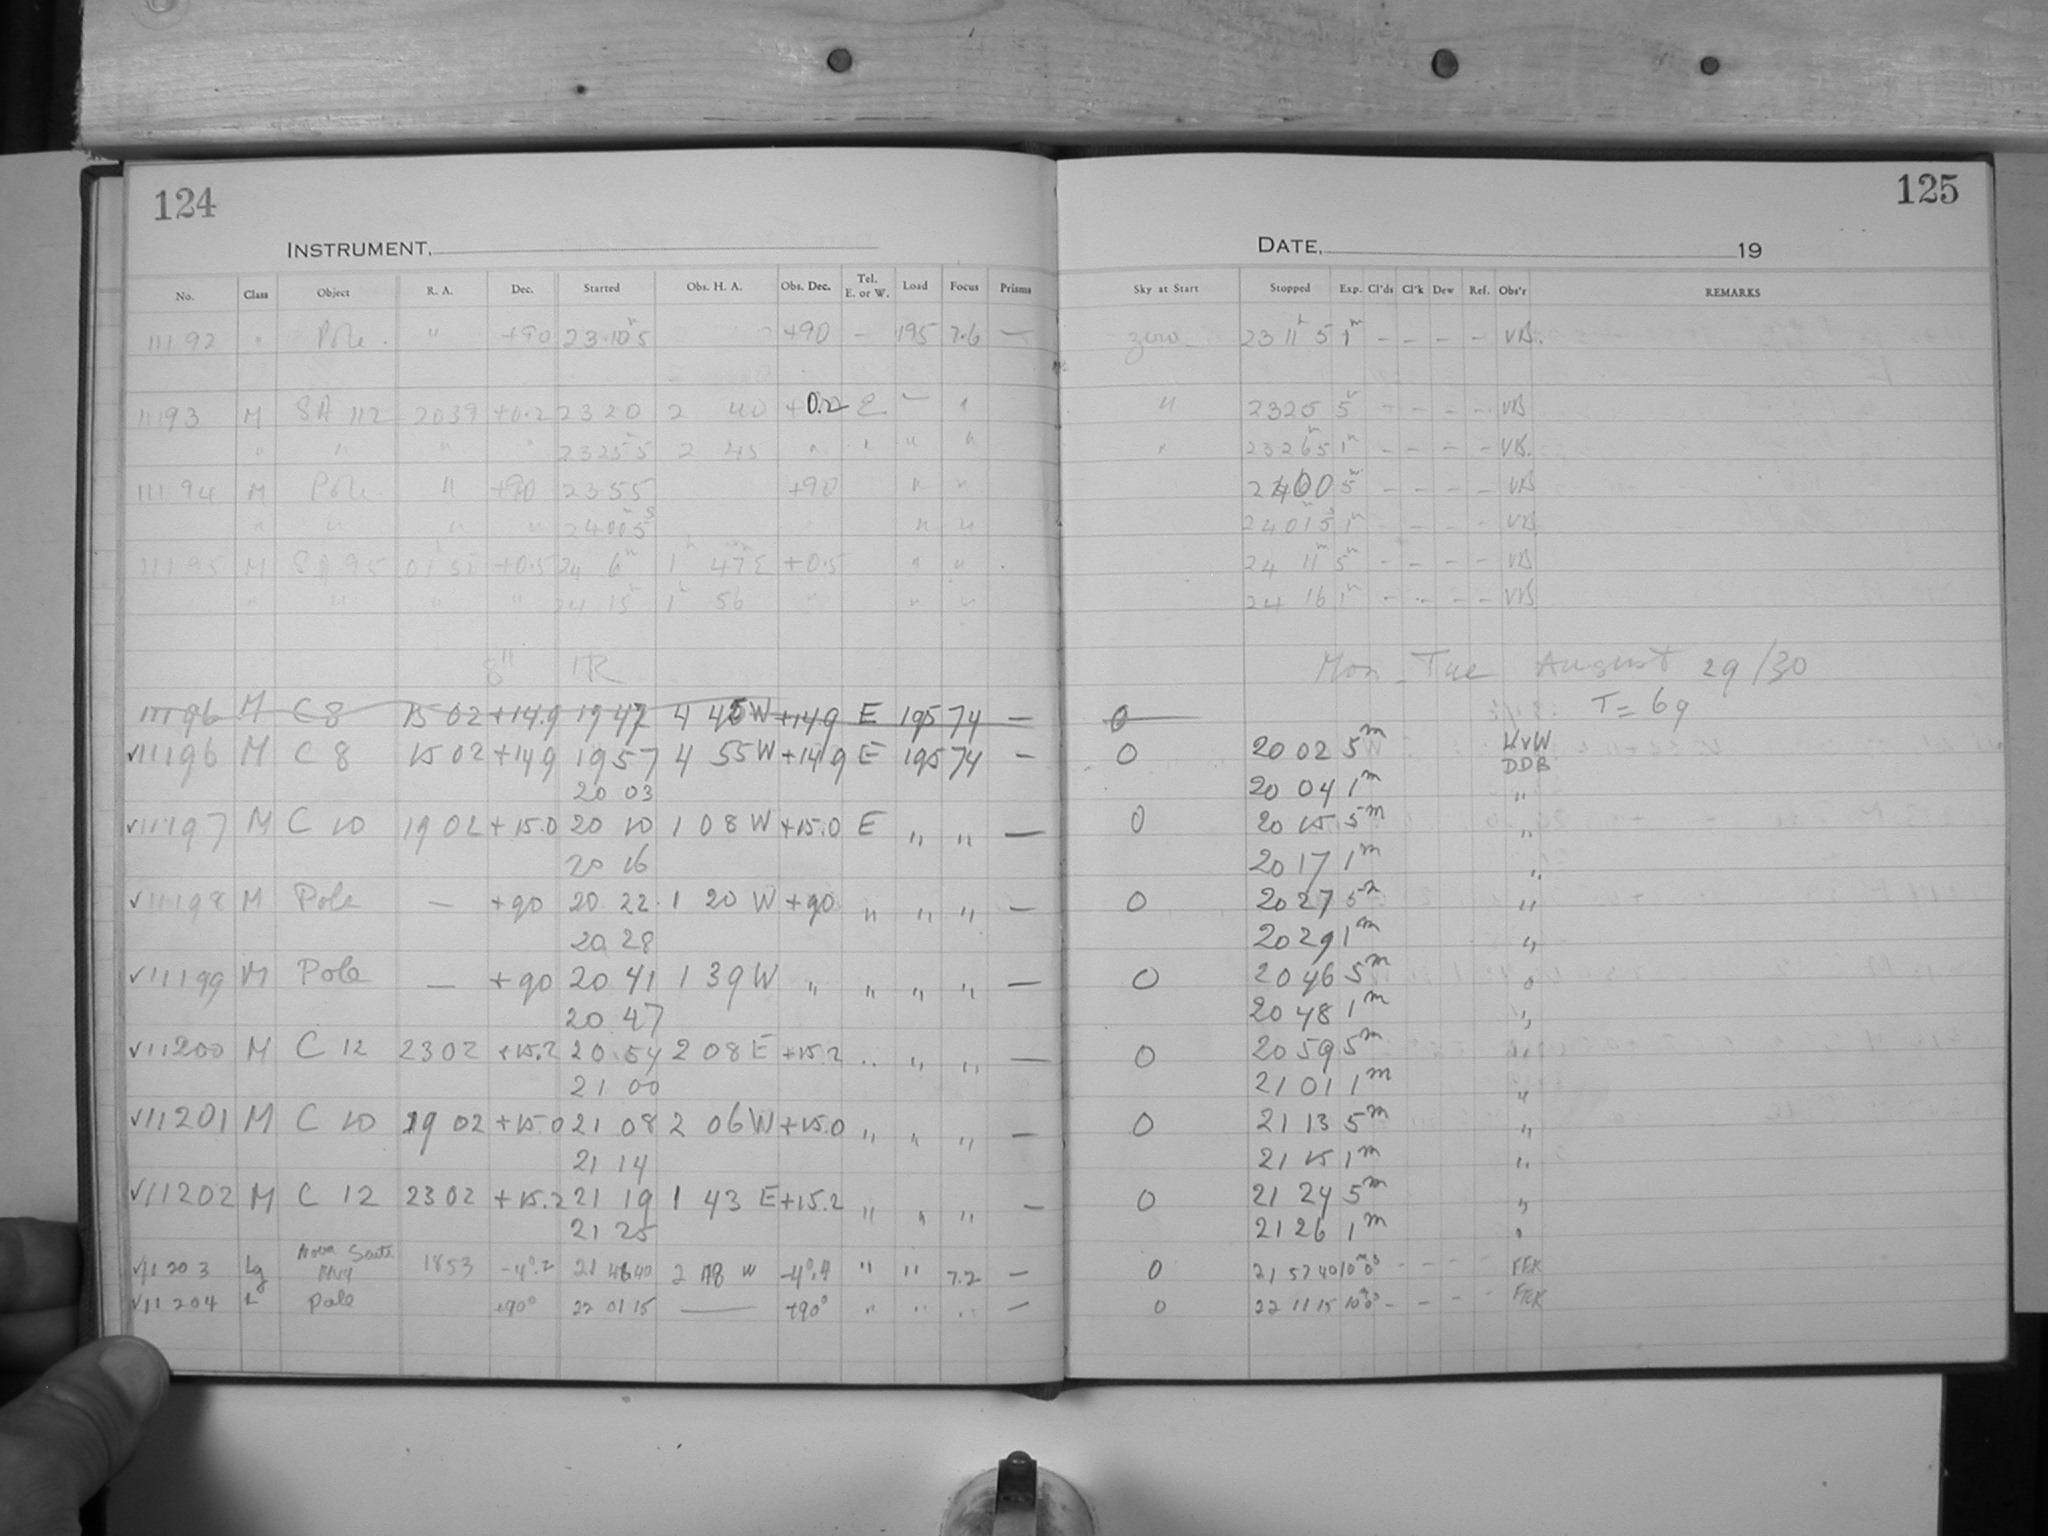 124
125
INSTRUMENT,
DATE, 19
No. Class Object R. A. Dec. Started Obs. H. A. Obs. Dec. Tel. E. or W. Load Focus Prisms Sky at Start Stopped Exp. Cl'ds Cl'k Dew Ref. Obs'r REMARKS
11192 " Pole " +90 23 10 5 +90 - 195 7.6 — zero 23 11 5 1m - - - - VB.
11193 M SA 112 2039 +0.2 23 20 2 40 +0.2 E — " " 23 25 5m - - - - VB
" " " " 23 25 5 2 45 " " " " " 23 26 5 1m - - - - VB.
11194 M Pole " +90 23 55 +90 " " 2400 5m - - - - VB
" " " " 24 00 5 " " 24 01 5 1m - - - - VB
11195 M SA 95 01 51 +0.5 24 6m 1h 47 E +0.5 " " 24 11m 5m - - - - VB
" " " " 24 15m 1h 56 " " " 24 16 1m - - - - VB
8" IR Mon - Tue August 29/30
11196 M C 8 15 02 +14.9 19 47 4 45 W +14.9 E 195 74 — 0 T = 69
√11196 M C 8 15 02 +149 19 57 4 55 W +149 E 195 74 — 0 20 02 5m HvW DDB
20 03 20 04 1m "
√11197 M C 10 19 02 +15.0 20 10 1 08 W +15.0 E " " — 0 20 15 5m "
20 16 20 17 1m "
√11198 M Pole — +90 20 22 1 20 W +90 " " " — 0 20 27 5m "
20 28 20 29 1m "
√11199 M Pole — +90 20 41 1 39 W " " " " — 0 20 46 5m "
20 47 20 48 1m "
√11200 M C 12 23 02 +15.2 20 54 2 08 E +15.2 " " " — 0 20 59 5m "
21 00 21 01 1m "
√11201 M C 10 19 02 +15.0 21 08 2 06 W +15.0 " " " — 0 21 13 5m "
21 14 21 15 1m "
√11202 M C 12 23 02 +15.2 21 19 1 43 E +15.2 " " " — 0 21 24 5m "
21 25 21 26 1m "
√11203 Lg Nova Scuti 1853 -4°.2 21 48 40 2 W " " 7.2 — 0 21 57 40 - - - - FEK
√11204 L Pole +90° 22 01 15 — +90° " " " — 0 22 11 15 10m0s - - - - FEK